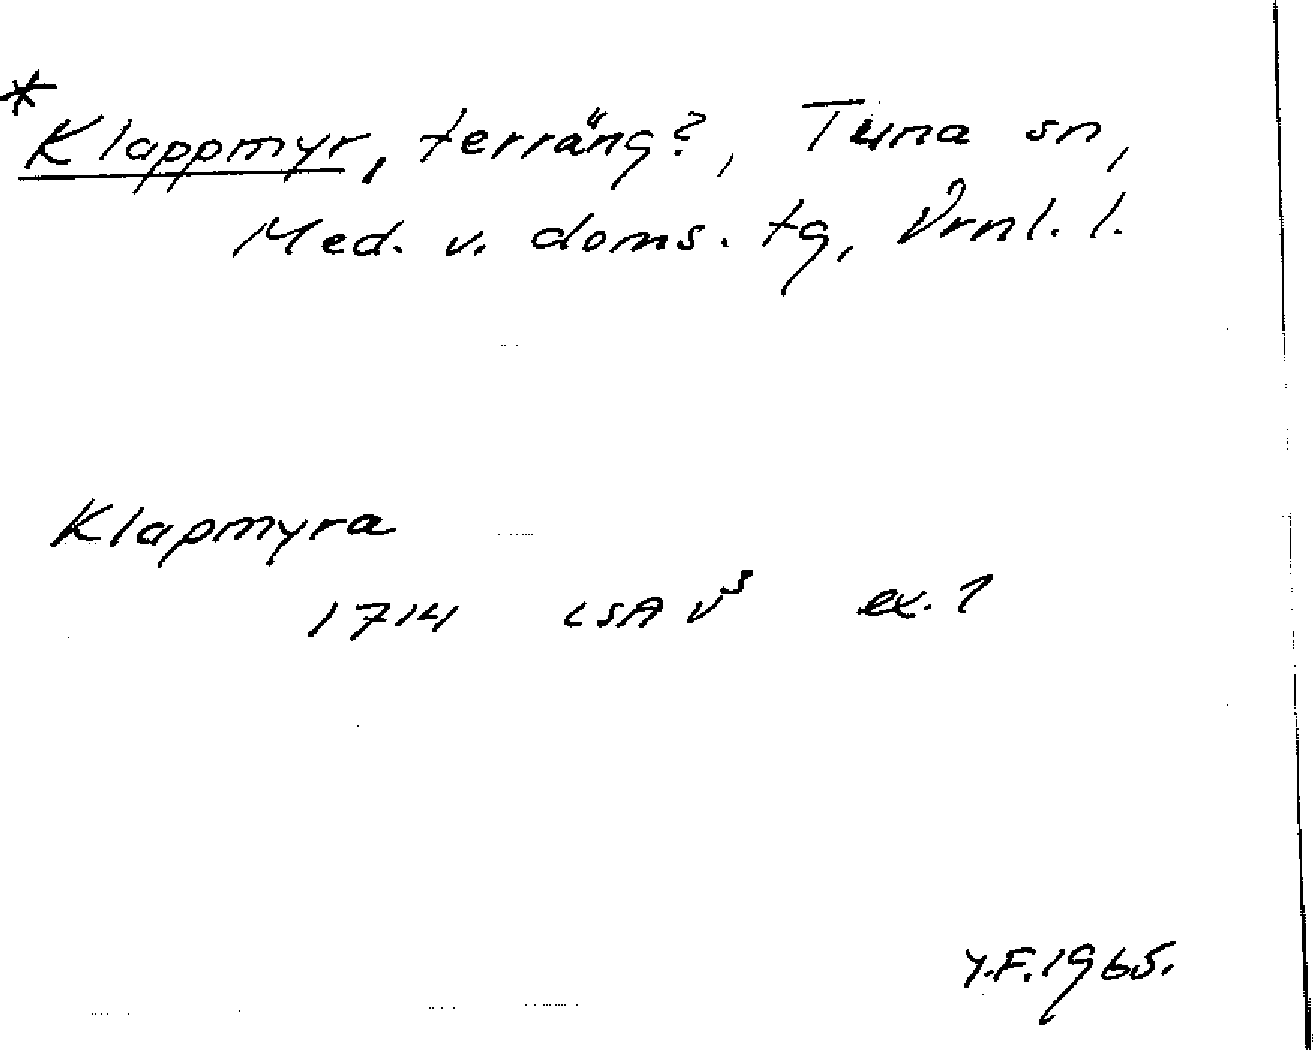 *Klappmyr, terräng?, Tuna sn,
Med. v. doms. tg, Vrnl. l.
Klapmyra
1714 LSA V³ ex. 1
Y.F. 1965.